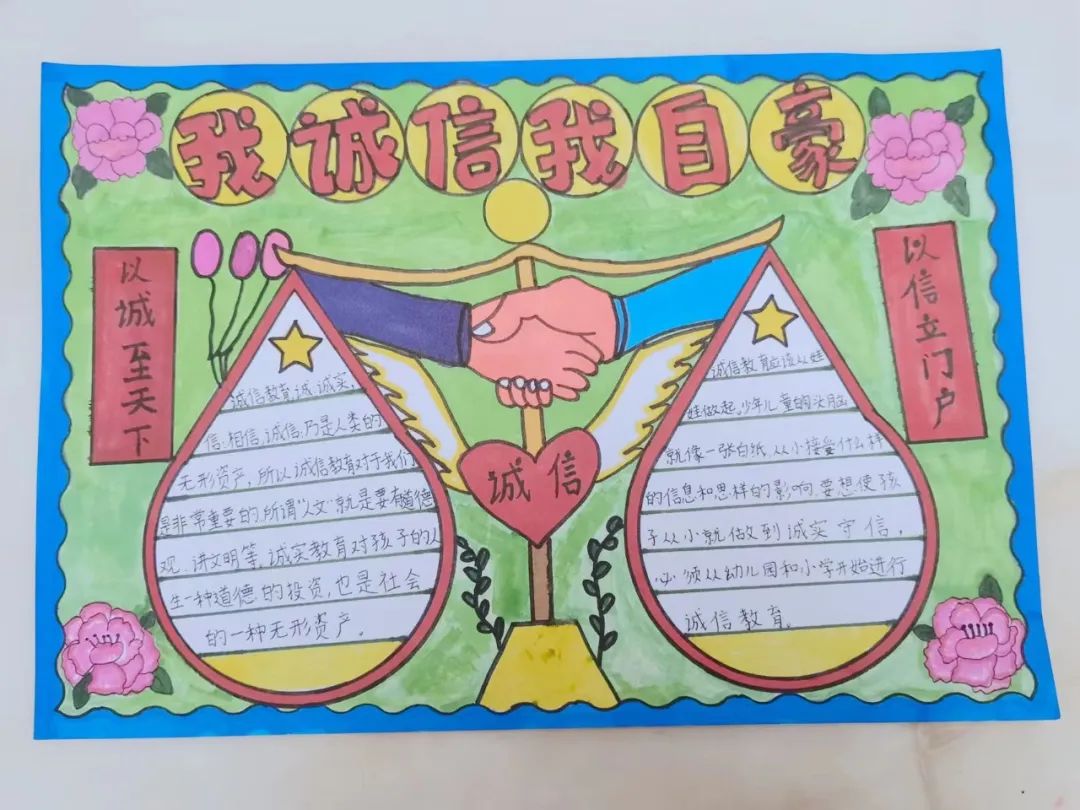 我诚信我自豪
以诚至天下
以信立门户
诚信
诚信教育,诚:诚实,
信:相信,诚信:乃是人类的
无形资产,所以诚信教育对于我们
是非常重要的.所谓"人文"就是要有道德
观.讲文明等,诚实教育对孩子的人
生一种道德的投资,也是社会
的一种无形资产。
诚信教育应该从娃
娃做起,少年儿童的头脑
就像一张白纸,从小接受什么样
的信息和思样的影响.要想使孩
子从小就做到诚实守信,
必须从幼儿园和小学开始进行
诚信教育。